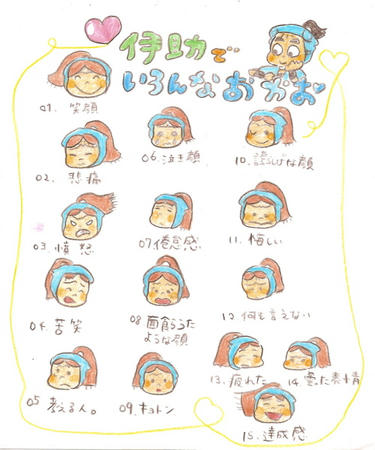 伊助で
いろんなおかお
01. 笑顔
02. 悲痛
03. 憤怒
04. 苦笑
05. 考える人。
06. 泣き顔
07. 倦怠感
08. 面食らった
ような顔
09. キョトン
10. 誇らしげな顔
11. 悔しい
12. 何も言えない
13. 疲れた
14. 憂いた表情
15. 達成感